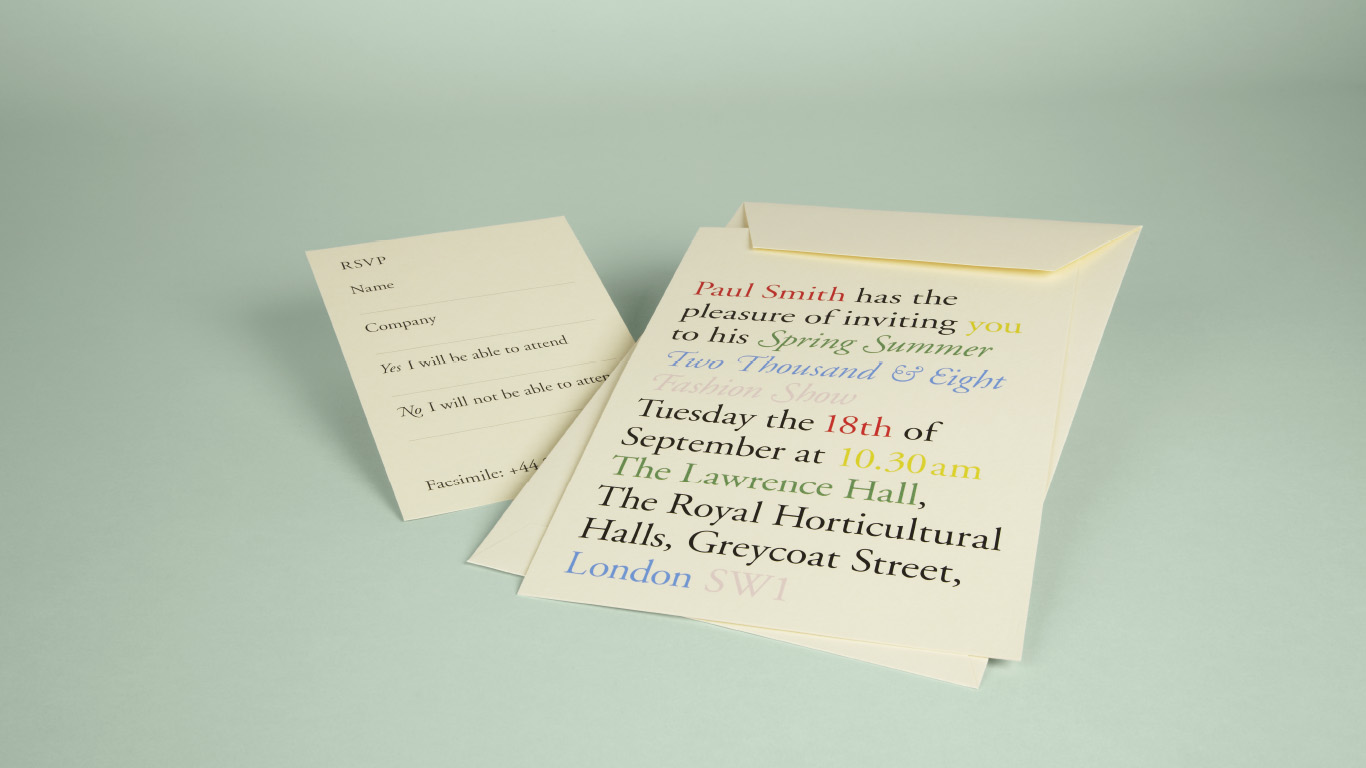 RSVP
Name
Company
Yes I will be able to attend
No I will not be able to
Facsimile: +44
Paul Smith has the
pleasure of inviting you
to his Spring Summer
Two Thousand & Eight
Fashion Show
Tuesday the 18th of
September at 10.30am
The Lawrence Hall,
The Royal Horticultural
Halls, Greycoat Street,
London SW1